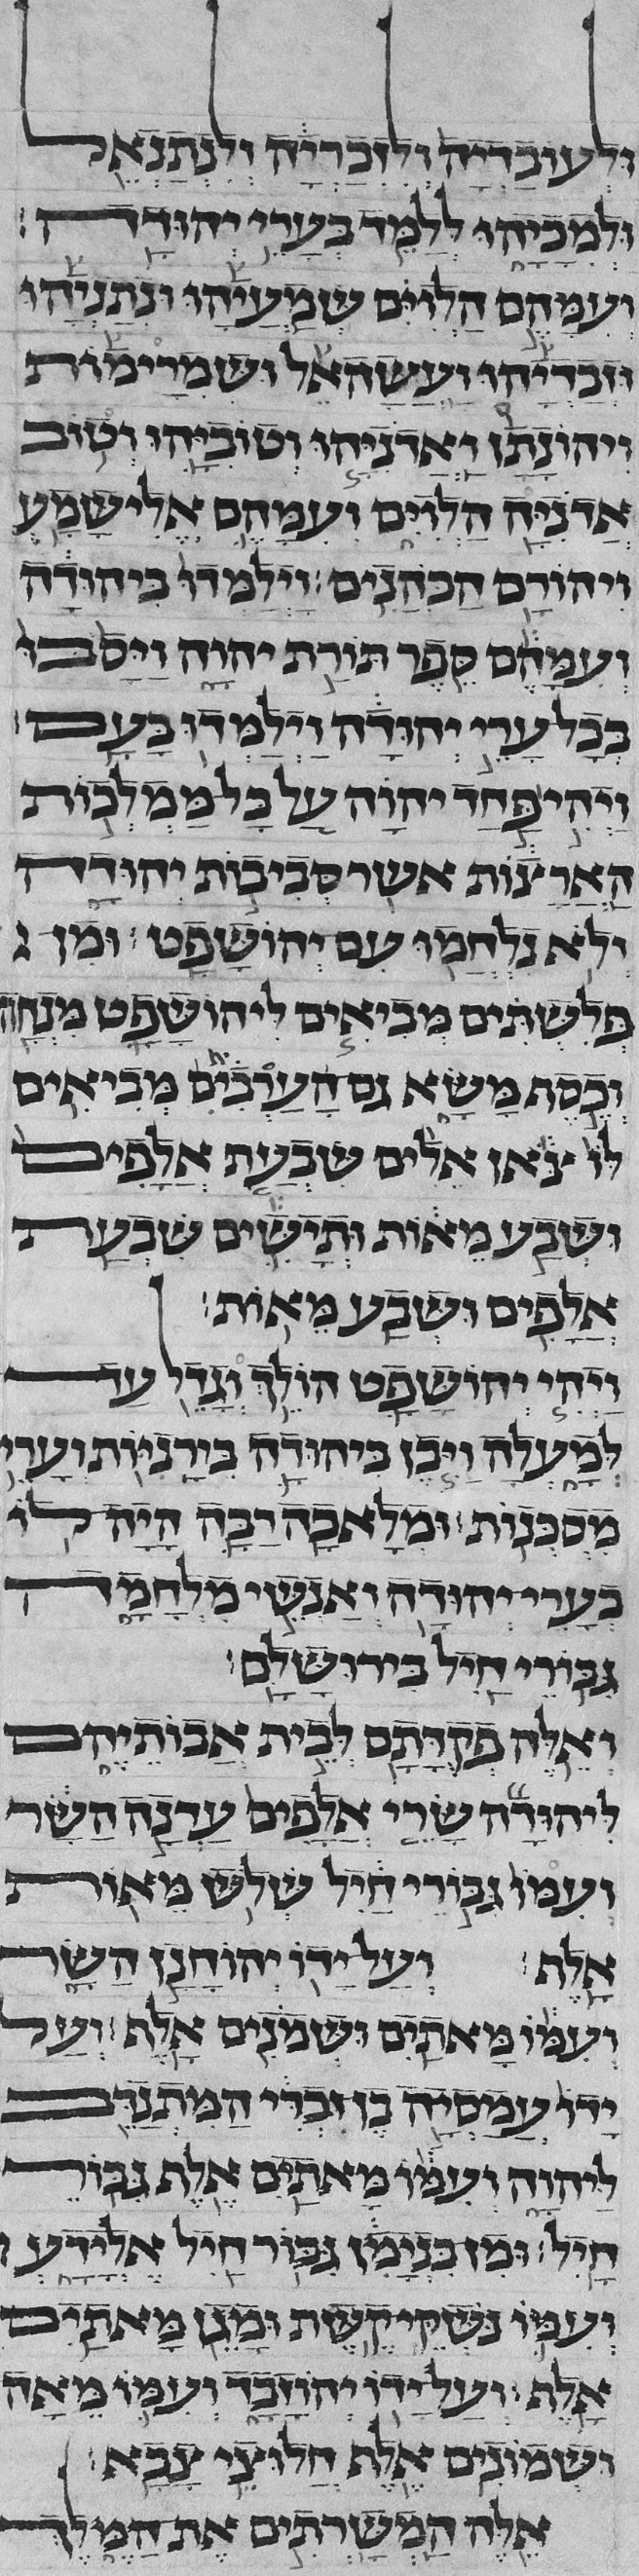 ולעובדיה ולזכריה ולנתנאל
ולמכיהו ללמד בערי יהודה׃
ועמהם הלוים שמעיהו ונתניהו
וזבדיהו ועשהאל ושמרימות
ויהונתן ואדניהו וטוביהו וטוב
אדניה הלוים ועמהם אלישמע
ויהורם הכהנים׃ וילמדו ביהודה
ועמהם ספר תורת יהוה ויסבו
בכל ערי יהודה וילמדו בעם׃
ויהי פחד יהוה על כל ממלכות
הארצות אשר סביבות יהודה
ולא נלחמו עם יהושפט׃ ומן
פלשתים מביאים ליהושפט מנחה
וכסף משא גם הערבים מביאים
לו צאן אלים שבעת אלפים
ושבע מאות ותישים שבעת
אלפים ושבע מאות׃
ויהי יהושפט הולך וגדל עד
למעלה ויבן ביהודה בירניות וערי
מסכנות׃ ומלאכה רבה היה לו
בערי יהודה ואנשי מלחמה
גבורי חיל בירושלם׃
ואלה פקדתם לבית אבותיהם
ליהודה שרי אלפים עדנה השר
ועמו גבורי חיל שלש מאות
אלף׃ ועל ידו יהוחנן השר
ועמו מאתים ושמנים אלף׃ ועל
ידו עמסיה בן זכרי המתנדב
ליהוה ועמו מאתים אלף גבור
חיל׃ ומן בנימן גבור חיל אלידע
ועמו נשקי קשת ומגן מאתים
אלף׃ ועל ידו יהוזבד ועמו מאה
ושמונים אלף חלוצי צבא׃
אלה המשרתים את המלך